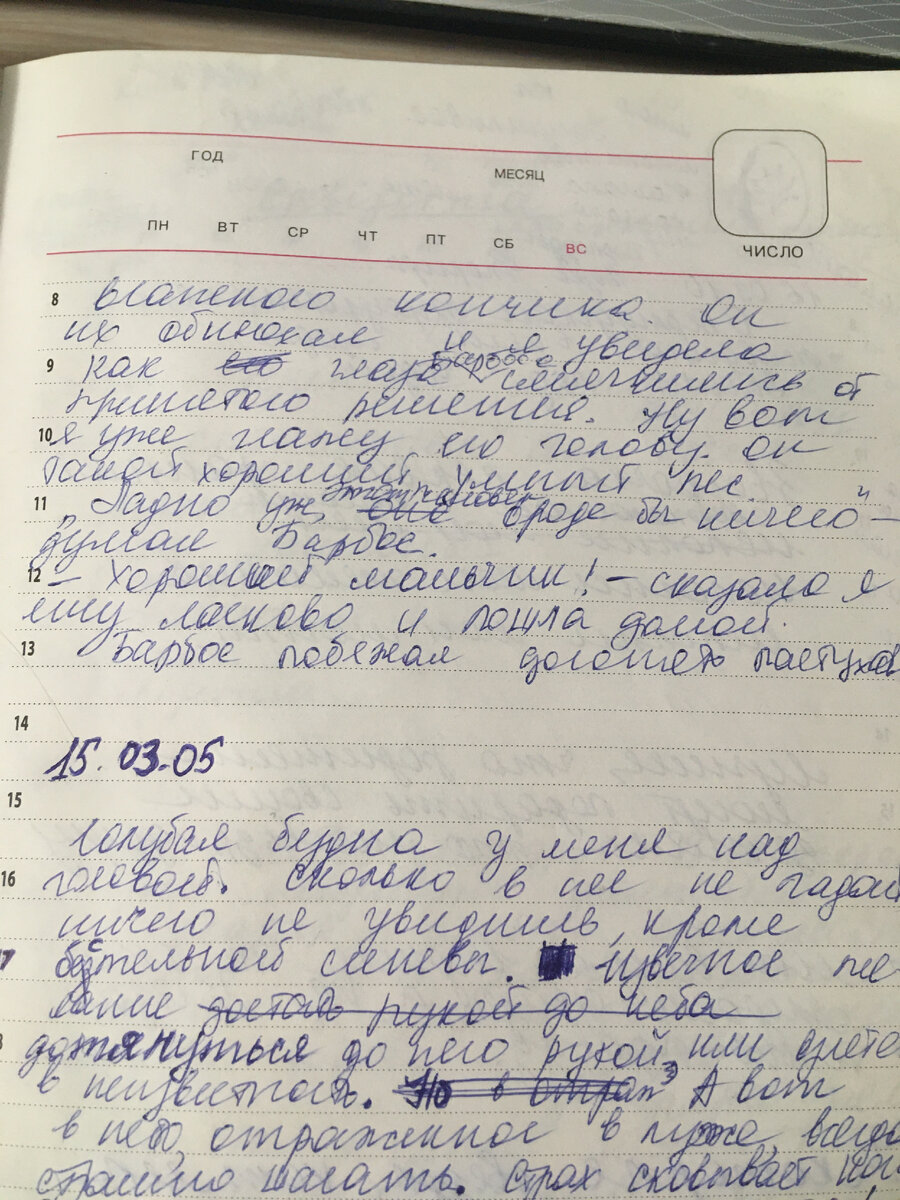 ГОД
МЕСЯЦ
ПН ВТ СР ЧТ ПТ СБ ВС
ЧИСЛО
8 влажного кончика. Он
их обнюхал и я увидела
9 как его глаза Барбоса смягчились от
принятого решения. Ну вот
10 я уже глажу его голову. Он
такой хороший, умный пес.
11 „Ладно уж, этот человек вроде бы ничего" –
думал Барбос.
12 – Хороший мальчик! – сказала я
ему ласково и пошла домой.
13 Барбос побежал догонять пастухов
14
15.03.05
15
Голубая бездна у меня над
16 головой. Сколько в нее не гадай
ничего не увидишь, кроме
17 синевы. Извечное же-
лание достать рукой до неба
дотянуться до него рукой, или слете
в неизвестность. Но в отраж А вот
в небо, отраженное в луже, всегда
страшно шагать. Страх сковывает